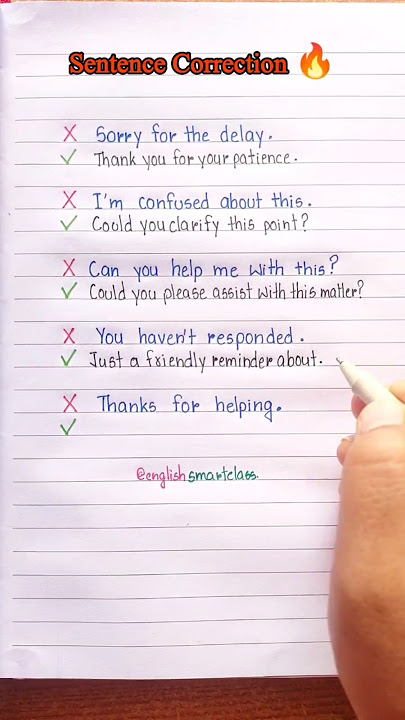 Sentence Correction 🔥
X Sorry for the delay.
✓ Thank you for your patience.
X I'm confused about this.
✓ Could you clarify this point?
X Can you help me with this?
✓ Could you please assist with this matter?
X You haven't responded.
✓ Just a friendly reminder about.
X Thanks for helping.
✓
@englishsmartclass.